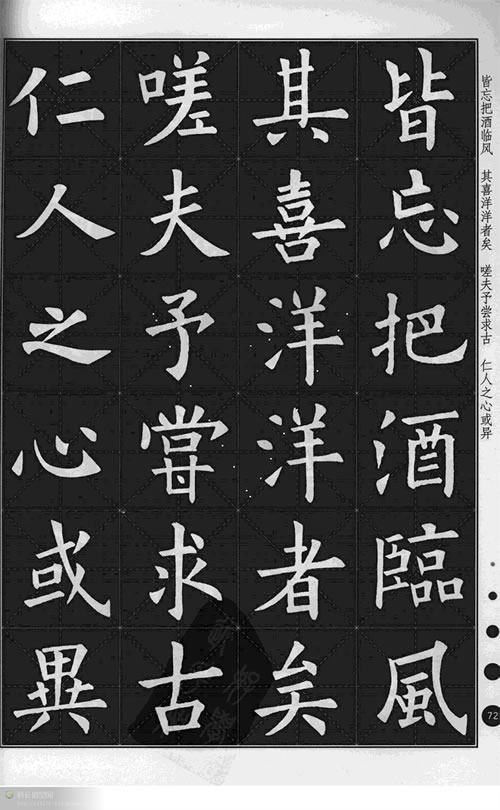 皆忘把酒臨風
其喜洋洋者矣
嗟夫予嘗求古
仁人之心或異
皆忘把酒临风 其喜洋洋者矣 嗟夫予尝求古 仁人之心或异
72